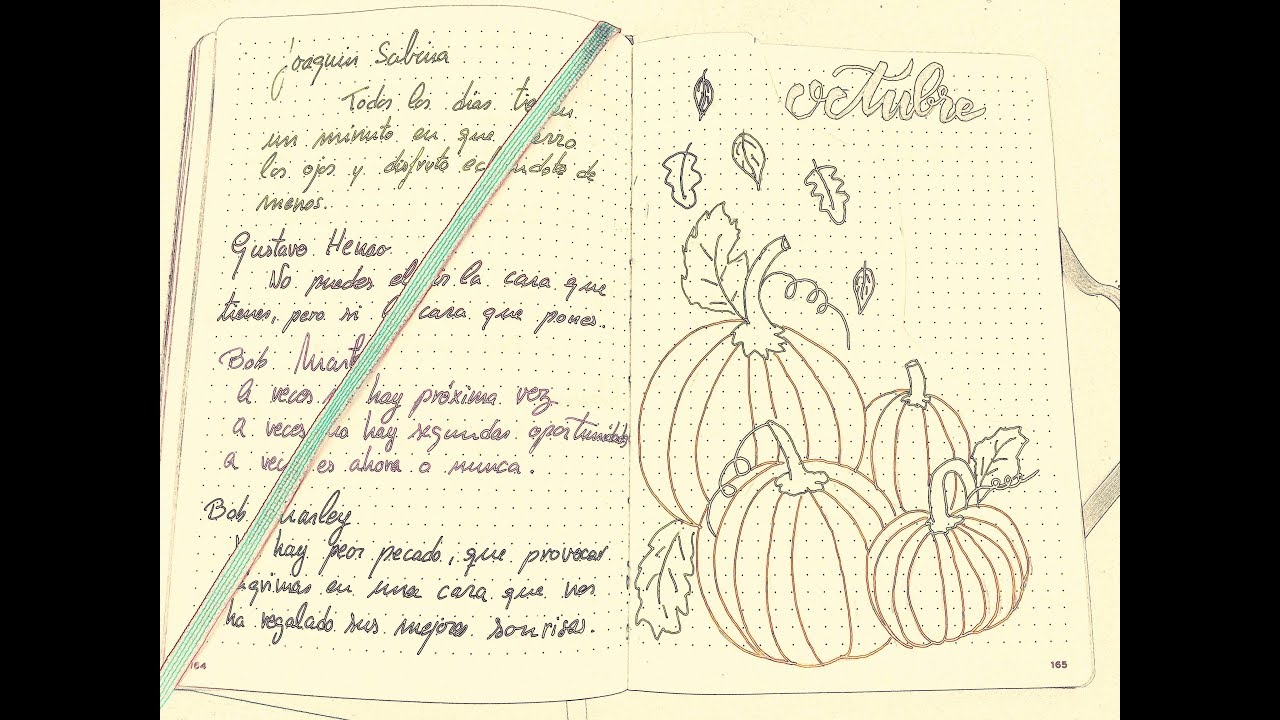 Joaquin Sabina
Todos los días
un minuto en que
los ojos y disfruto de
menos.
Gustavo Henao
No puedes la cara que
tienes, pero si cara que pones.
Bob
A veces hay próxima vez
a veces no hay segundas oportunidades
a es ahora o nunca.
Bob
hay peor pecado, que provocar
en una cara que nos
ha regalado sus mejores sonrisas.
164
octubre
165